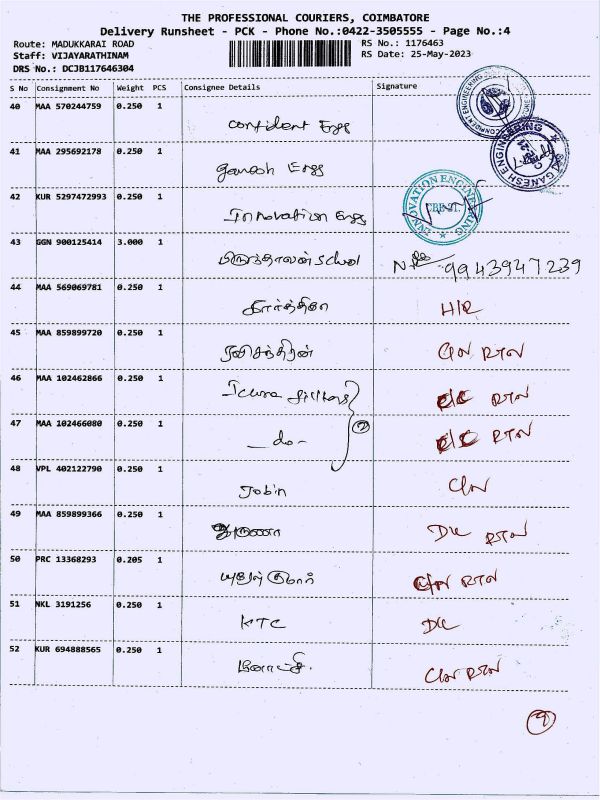 THE PROFESSIONAL COURIERS, COIMBATORE
Delivery Runsheet - PCK - Phone No.:0422-3505555 - Page No.:4
Route: MADUKKARAI ROAD RS No.: 1176463
Staff: VIJAYARATHINAM RS Date: 25-May-2023
DRS No.: DCJB117646304
S No Consignment No Weight PCS Consignee Details Signature
40 MAA 570244759 0.250 1
Confident Engg
41 MAA 295692178 0.250 1
Ganesh Engg
42 KUR 5297472993 0.250 1
Innovation Engg
INNOVATION ENGINEERING
CONFIDENT ENGINEERING
GANESH ENGINEERING
43 GGN 900125414 3.000 1
School 9943947239
44 MAA 569069781 0.250 1
கார்த்திகா H/R
45 MAA 859899720 0.250 1
ரவிசந்திரன் C/N RTN
46 MAA 102462866 0.250 1
C/C RTN
47 MAA 102466080 0.250 1
-do- 2 C/C RTN
48 VPL 402122790 0.250 1
Jobin C/N
49 MAA 859899366 0.250 1
D/C RTN
50 PRC 13368293 0.205 1
C/N RTN
51 NKL 3191256 0.250 1
KTC D/C
52 KUR 694888565 0.250 1
C/N RTN
9